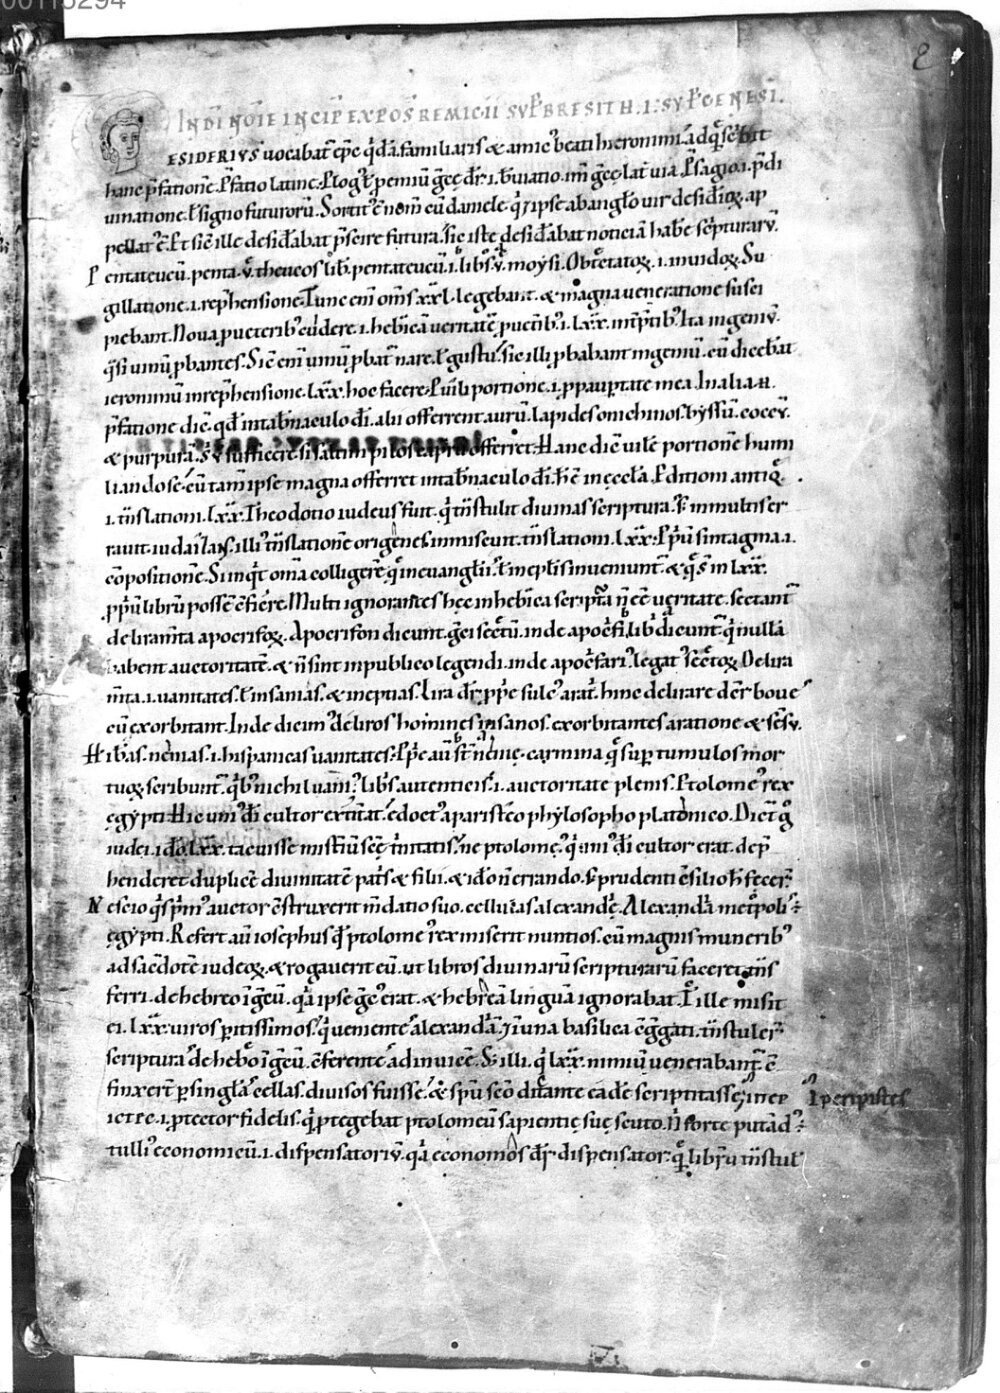 00115294
IN DI NOIE INCIP EXPOS REMIGII SVP BRESITH. I. SVP GENESI.
ESIDERIVS uocabat epc qda familiaris & amic beati hieronimi ad que scbit
hanc pfatione. Pfatio latine. Plogus t pemiu gce dr. i. bruiatio. in gco lat uia. Psagio. i. pdi
uinatione. t signo futuroru. Sortit e nom eu daniele qui ipse ab anglo uir desidioz ap
pellat e. Et sic ille desidabat pscire futura. sic iste desidabat noticia habe scripturaru.
Pentateucu. penta. v. theucos lib. pentateucu. i. libs. v. moysi. Obtretatoz. i. inuidoz. Su
gillatione. i. rephensione. Tunc em oms xxl. legebant. & magna ueneratione susci
piebant. Noua p ueterib cudere. i. hebica ueritate p uetib. i. lxx. intptib. Ita ingeniu.
qsi uinu pbantes. Sic em uinu pbat nare. t gustu. sic illi pbabant ingeniu. cu dicebat
ieronimu in rephensione. lxx. hoc facere. P uili portione. i. p paupertate mea. In alia .n.
pfatione dic. qd in tabnaculo di. alii offerrent auru. lapides onichinos. byssu. coccu.
& purpura. s sufficere si saltim pilos capru offerret. Hanc dic uile portione humi
liando se. cu tam ipse magna offerret in tabnaculo di. h e in eccla. Editioni antiq.
i. tnslationi. lxx. Theodotio iudeus fuit. q tnstulit diuinas scriptura. s in multis er
rauit iudaizans. illi tnslatione origenes inmiscuit. tnslationi. lxx. Ppriu sintagma. i.
copositione. Si inqt oma colligere q in euanglii. t in eplis inueniunt. & qs in lxx.
ppriu libru posse e fiere. Multi ignorantes hec in hebica scripta n ee ueritate. sectant
deliramta apocrifoz. Apocrifon dicunt gci sectu. inde apocfi libi dicunt. q nulla
habent auctoritate. & n sint in publico legendi. inde apocfari. legat secretoz. Delira
mta. i. uanitates. t insanias. & ineptias. Lira dr ppe sulc arat. hinc delirare der boue
cu exorbitant. Inde dicim deliros homines insanos. exorbitantes a ratione & sensu.
Hibas. nemas. i. hispanicas uanitates. Ppe au st nenie. carmina q sup tumulos mor
tuoz scribunt. qb nichil uani. libs autenticis. i. auctoritate plenis. Ptolome rex
egypti. Hic uni di cultor extitit. edoct a paristeo phylosopho platonico. Dict q
iudei. ido. lxx. tacuisse misteriu sce tnitatis. ne ptolome. q uni di cultor erat. dep
henderet duplice diuinitate pats & filii. & ido n errando. s prudenti csilio h fecer.
Nescio qs prim auctor cstruxerit mdatio suo. cellulas alexande. Alexanda metpoli
egypti. Refert au iosephus q ptolome rex miserit nuntios. cu magnis munerib
ad sacdote iudeoz. & rogauerit eu. ut libros diuinaru scripturaru faceret tns
ferri. de hebreo i gcu. qa ipse gc erat. & hebrea lingua ignorabat. I ille misit
ei. lxx. uiros pitissimos. q uenientes alexanda. in una basilica cggati. tnstuler
scriptura de hebo i gcu. cferente ad inuice. S illi. q lxx. nimiu uenerabant. c
finxert p singla cellas. diuisos fuisse. & spu sco dictante eade scriptitasse. in ep Ipcripistes
ictre. i. ptector fidelis. q ptegebat ptolomeu sapientie sue scuto. N forte putad
tulli economicu. i. dispensatoriu. qa economos dr dispensator. q libru tnstul